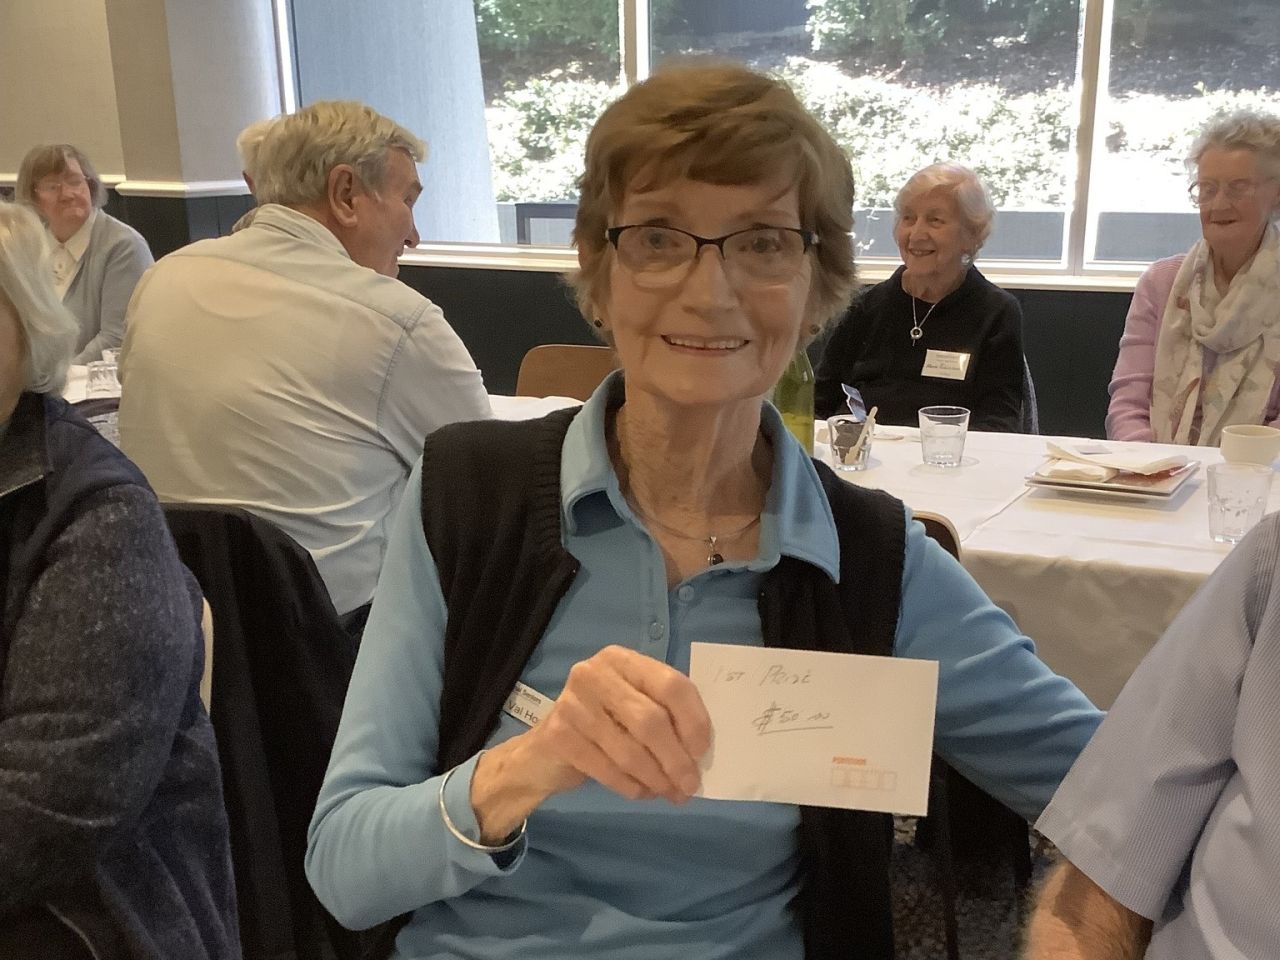 1ST PRIZE
$50.00
POSTCODE
Seniors
Val Ho